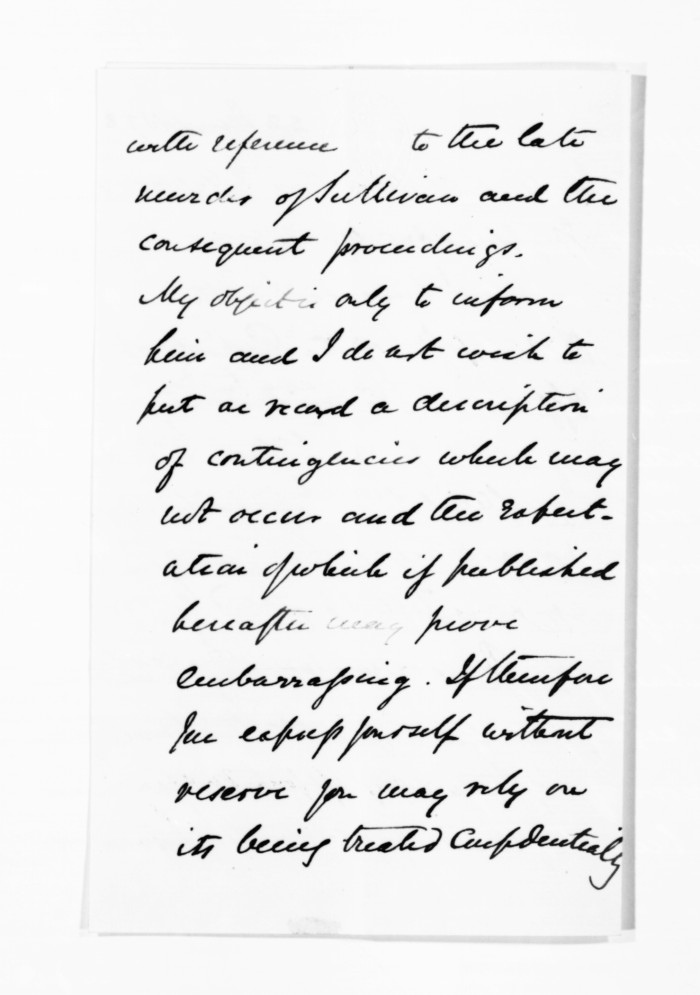 with reference to the late
murder of Sullivan and the
consequent proceedings.
My object is only to inform
him and I do not wish to
put on record a description
of contingencies which may
not occur and the expect-
ation of which if published
hereafter may prove
embarrassing. If therefore
you express yourself without
reserve you may rely on
its being treated Confidentially